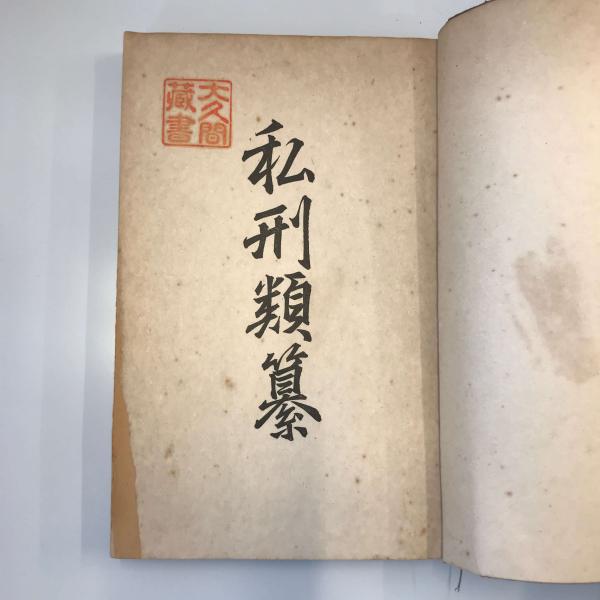 大久間
蔵書
私刑類纂